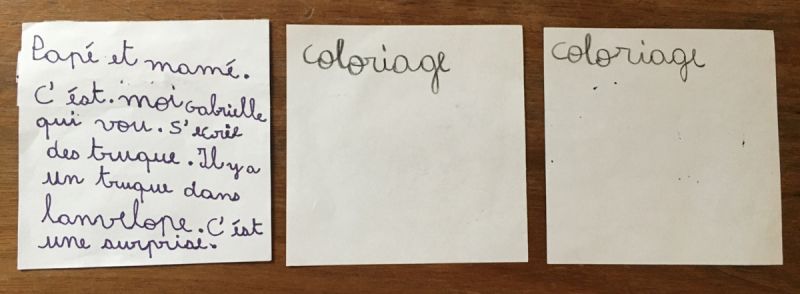 Papé et mamé.
C'ést. moi Gabrielle
qui vou. s'ecrie
des truque. Il y a
un truque dans
lanvelope. C'ést
une surprise.
coloriage
coloriage